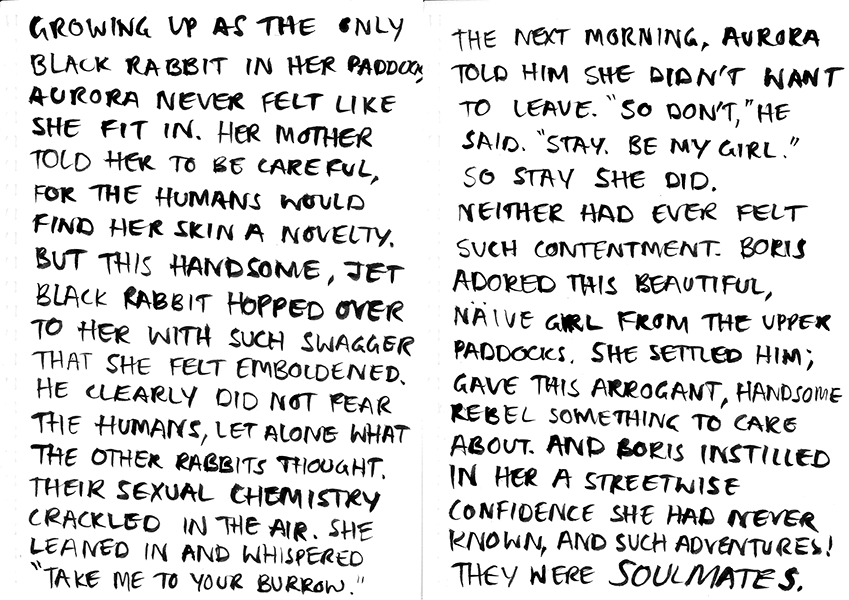 GROWING UP AS THE ONLY
BLACK RABBIT IN HER PADDOCK
AURORA NEVER FELT LIKE
SHE FIT IN. HER MOTHER
TOLD HER TO BE CAREFUL,
FOR THE HUMANS WOULD
FIND HER SKIN A NOVELTY.
BUT THIS HANDSOME, JET
BLACK RABBIT HOPPED OVER
TO HER WITH SUCH SWAGGER
THAT SHE FELT EMBOLDENED.
HE CLEARLY DID NOT FEAR
THE HUMANS, LET ALONE WHAT
THE OTHER RABBITS THOUGHT.
THEIR SEXUAL CHEMISTRY
CRACKLED IN THE AIR. SHE
LEANED IN AND WHISPERED
"TAKE ME TO YOUR BURROW."
THE NEXT MORNING, AURORA
TOLD HIM SHE DIDN'T WANT
TO LEAVE. "SO DON'T," HE
SAID. "STAY. BE MY GIRL."
SO STAY SHE DID.
NEITHER HAD EVER FELT
SUCH CONTENTMENT. BORIS
ADORED THIS BEAUTIFUL,
NÄIVE GIRL FROM THE UPPER
PADDOCKS. SHE SETTLED HIM;
GAVE THIS ARROGANT, HANDSOME
REBEL SOMETHING TO CARE
ABOUT. AND BORIS INSTILLED
IN HER A STREETWISE
CONFIDENCE SHE HAD NEVER
KNOWN, AND SUCH ADVENTURES!
THEY WERE SOULMATES.